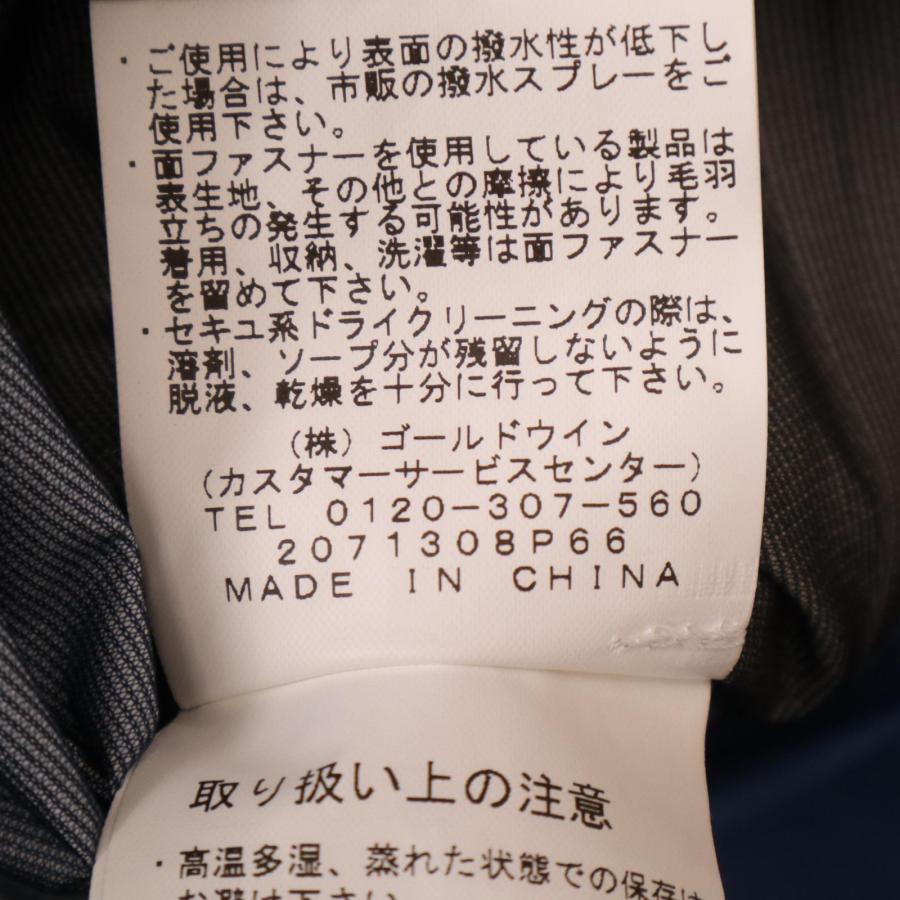 ・ご使用により表面の撥水性が低下し
た場合は、市販の撥水スプレーをご
使用下さい。
・面ファスナーを使用している製品は
表生地、その他との摩擦により毛羽
立ちの発生する可能性があります。
着用、収納、洗濯等は面ファスナー
を留めて下さい。
・セキユ系ドライクリーニングの際は、
溶剤、ソープ分が残留しないように
脱液、乾燥を十分に行って下さい。
(株)ゴールドウイン
(カスタマーサービスセンター)
TEL 0120-307-560
2071308P66
MADE IN CHINA
取り扱い上の注意
・高温多湿、蒸れた状態での保存は
お避け下さい。